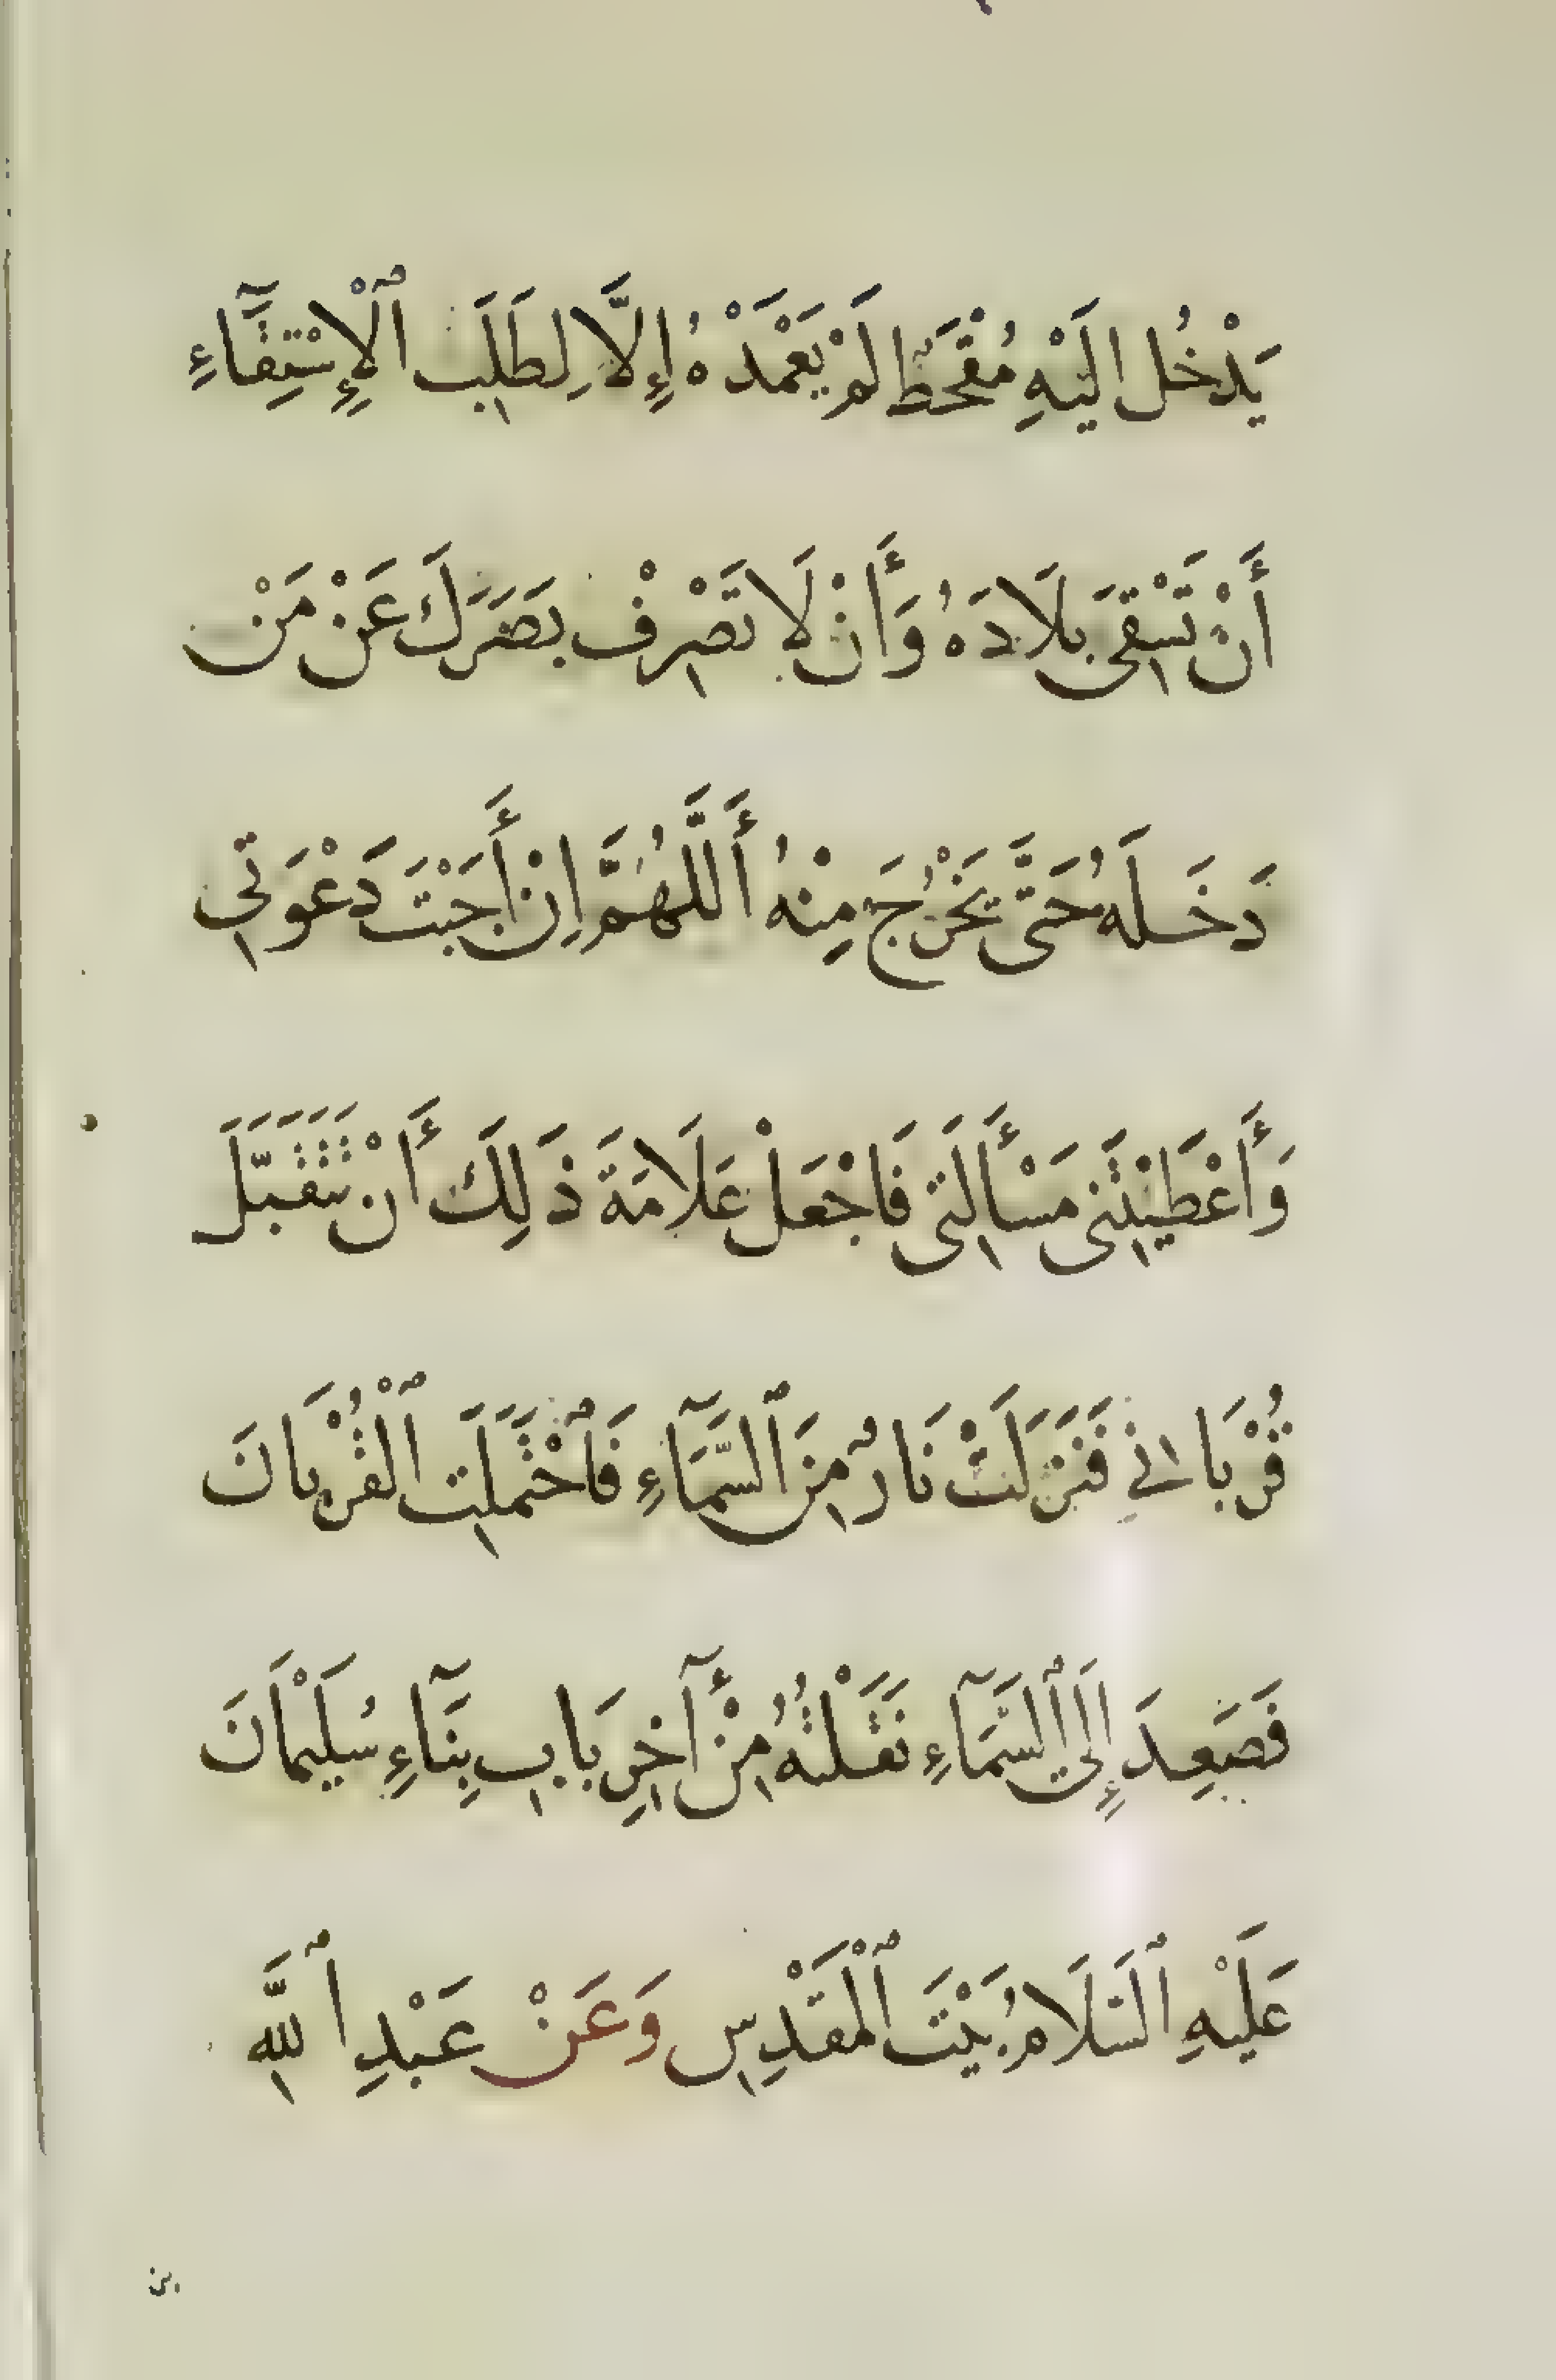 يَدْخُل اِلَيْهِ مُقْحَطٌ لَمْ يَعْمَدْهُ إِلَّا لِطَلَبِ ٱلْإِسْتِقَآءِ
أَنْ تَسْقِىَ بِلَادَهُ وَأَنْ لَا تَصْرِفْ بَصَرَكَ عَنْ مَنْ
دَخَلَهُ حَتَّى يَخْرُجَ مِنْهُ أَللَّهُمَّ اِنْ أَجَبْتَ دَعْوَتِي
وَأَعْطَيْتَنِى مَسْأَلَتِى فَاجْعَلْ عَلَامَةَ ذَلِكَ أَنْ تَتَقَبَّلَ
قُرْبَانِي فَنَزَلَتْ نَارٌ مِنَ ٱلسَّمَآءِ فَٱحْتَمَلَتِ ٱلْقُرْبَانَ
فَصَعِدَ إِلَى ٱلسَّمَآءِ نَقَلْتُهُ مِنْ آخِرِ بَابِ بِنَآءِ سُلَيْمَانَ
عَلَيْهِ ٱلسَّلَامُ بَيْتَ ٱلْمَقْدِسِ وَعَنْ عَبْدِ ٱللَّهِ
بن